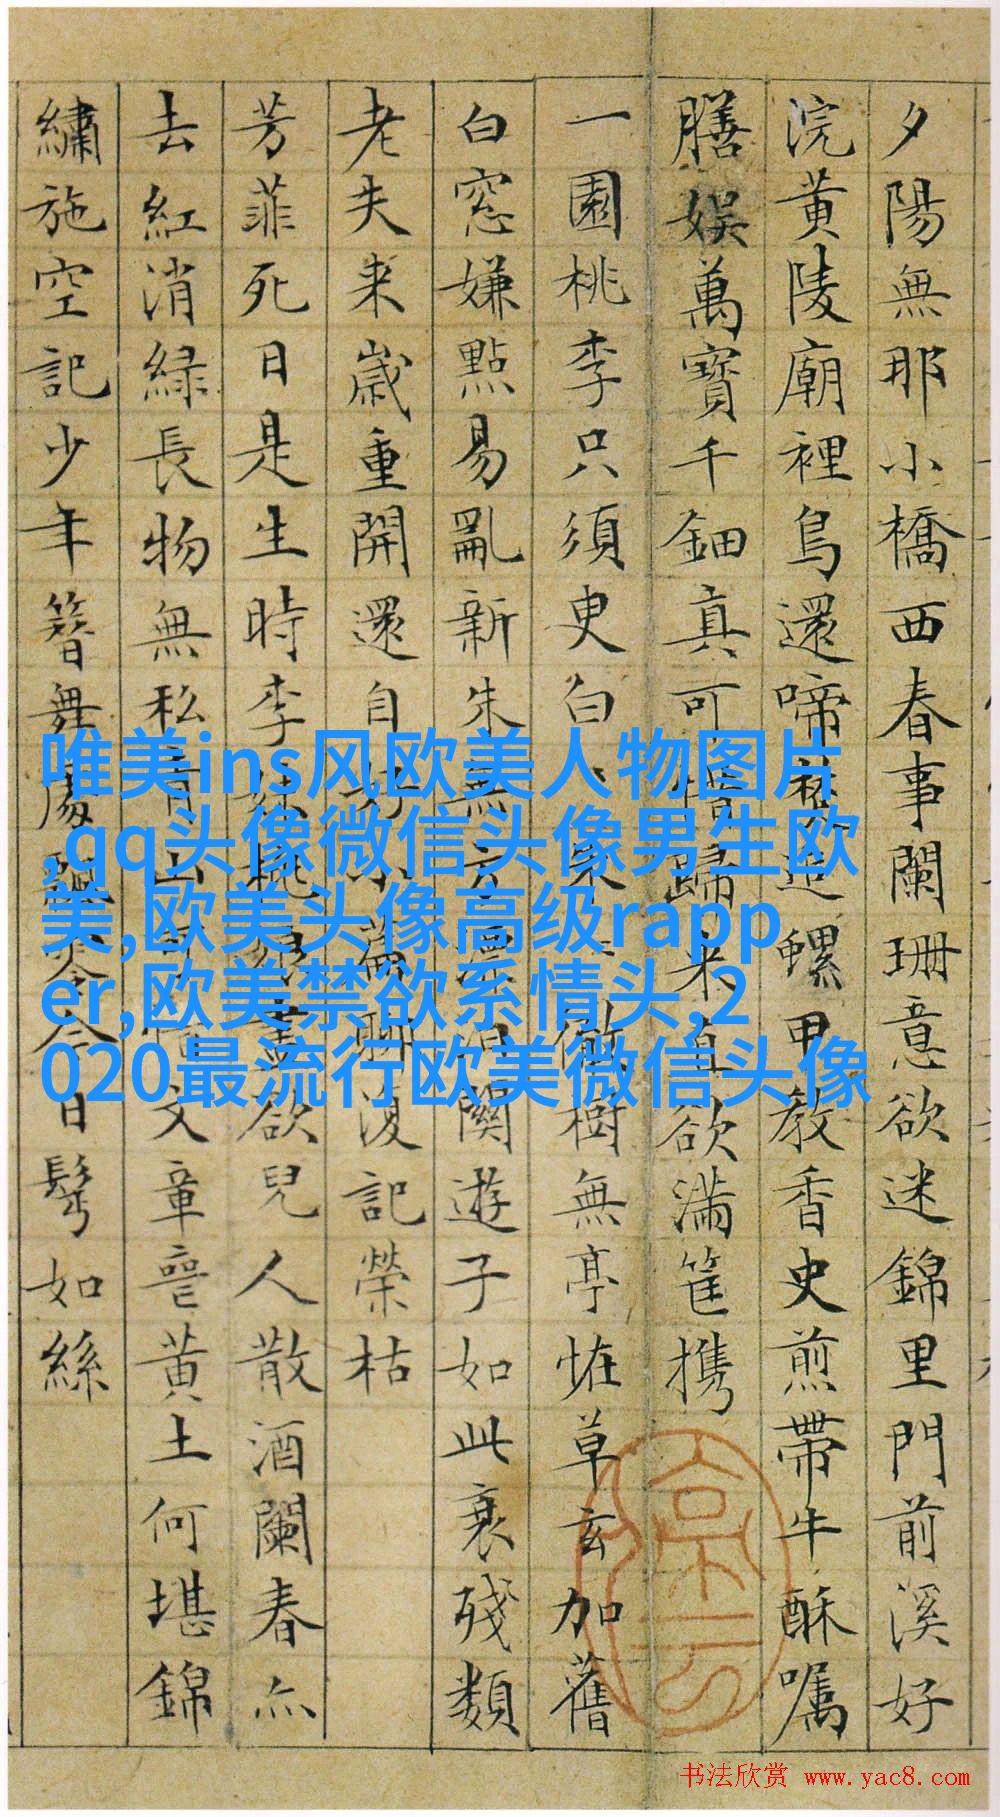 夕陽無那小橋西春事闌珊意欲迷錦里門前溪好
浣黃陵廟裡鳥還啼追螺甲教香史煎帶牛酥嘱
膳娛萬寶千鈿真可惜歸来直欲滿筐携
一園桃李只須臾白朱徹樹無亭怪草玄加舊
白窓嫌點易亂新朱無言漂泊關遊子如此衰殘類
老夫来歲重開還自好小篇聊復記榮枯
芳菲死日是生時李妹桃娘盡欲兒人散酒闌春亦
去紅消緑長物無私青山可惜文章喪黃土何堪錦
繡施空記少年簪舞處飄零今日髩如絲
唯美ins风欧美人物图片
,qq头像微信头像男生欧
美,欧美头像高级rapp
er,欧美禁欲系情头,2
020最流行欧美微信头像
书法欣赏 www.yac8.com